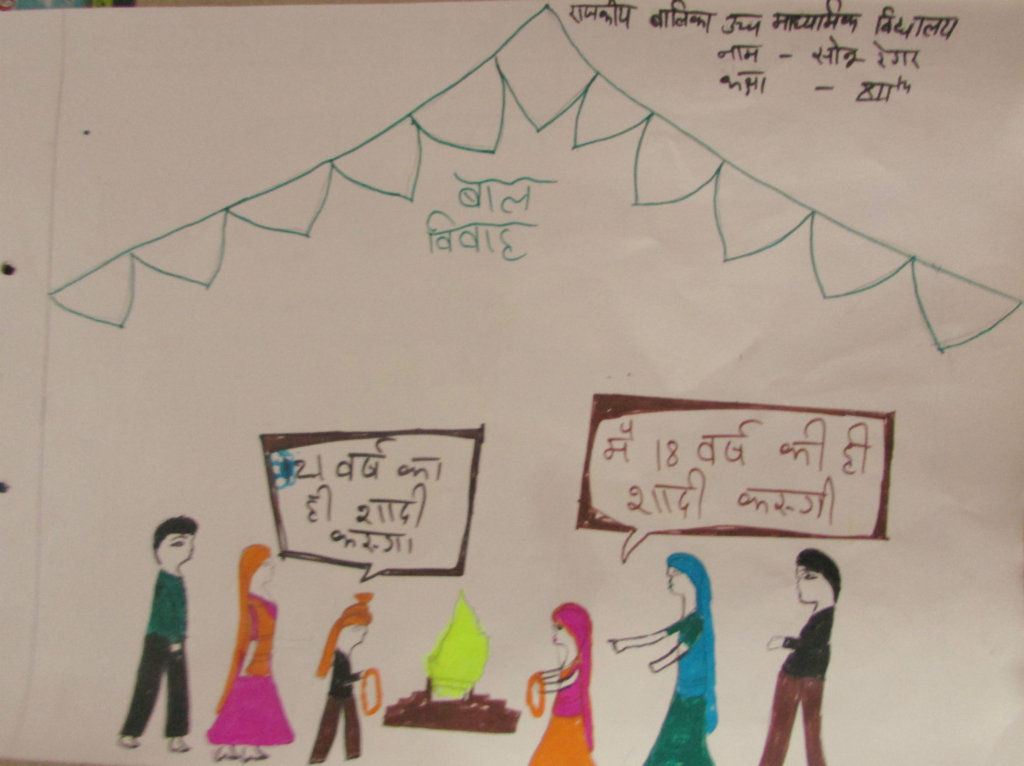 राजकीय बालिका उच्च माध्यमिक विद्यालय
नाम - सोनू रेगर
कक्षा - XIIth
बाल
विवाह
21 वर्ष का
ही शादी
करूगा
मैं 18 वर्ष की ही
शादी करूगी